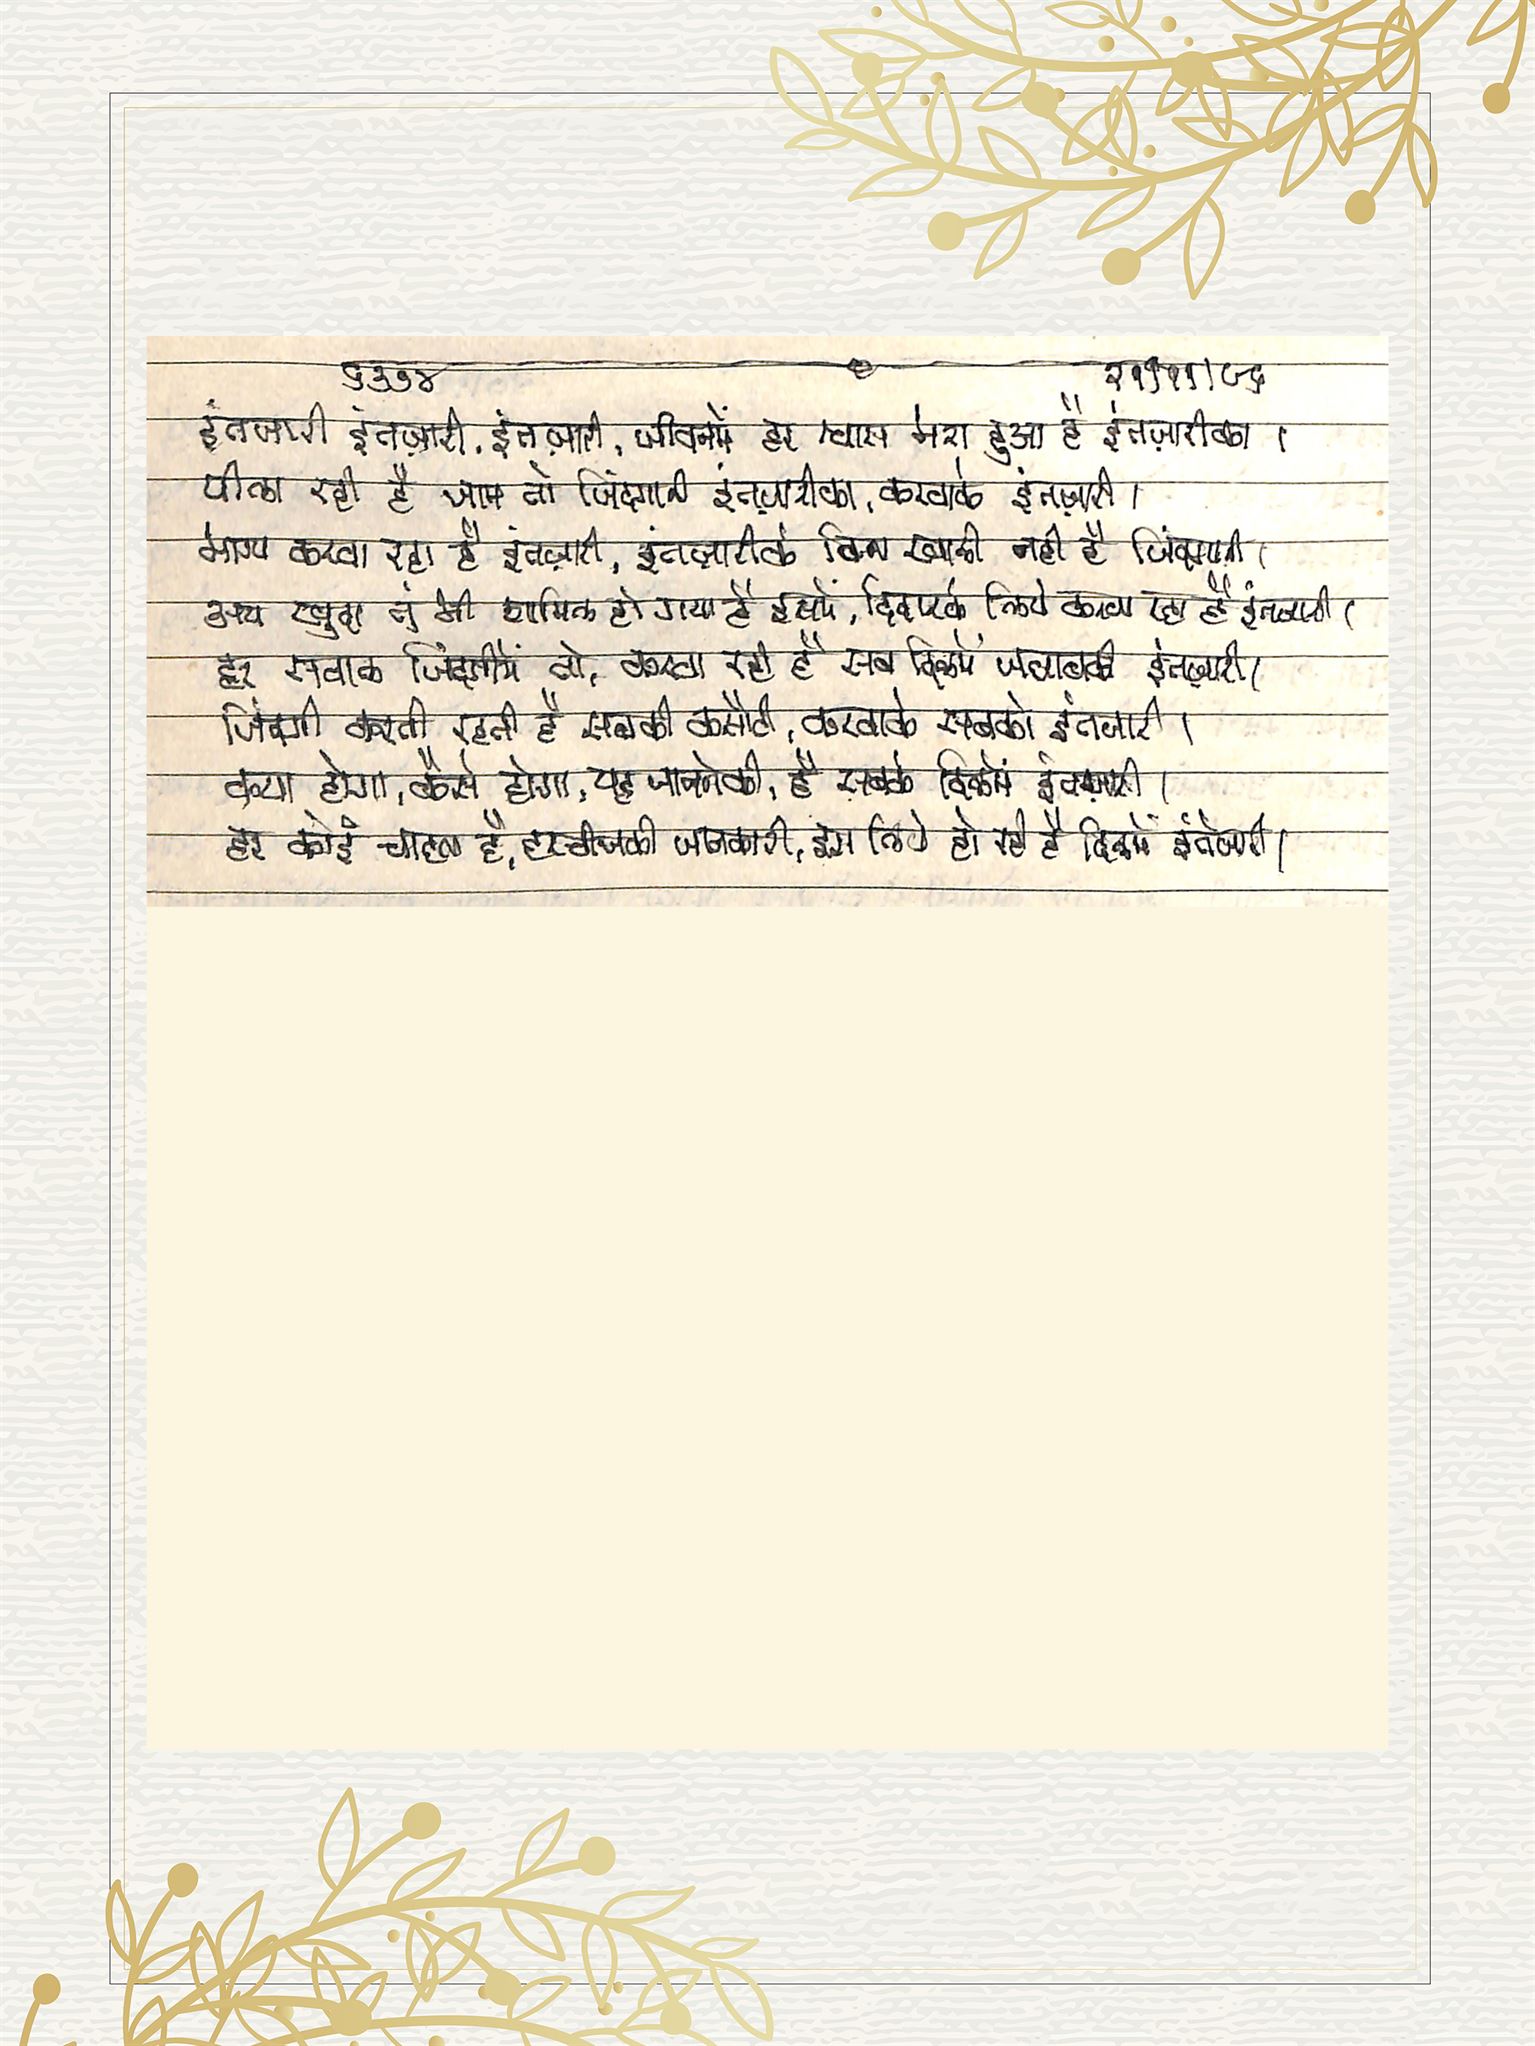 ६३७४
इंतजारी इंतज़ारी, इंतज़ारी, जीवनमें हर श्वास भरा हुआ है इंतज़ारीका ।
पीला रही है जाम तो जिंदगानी इंतज़ारीका, करवाके इंतज़ारी ।
भाग्य करवा रहा है इंतज़ारी, इंतज़ारीके बिना खाली नही है जिंदगानी ।
अय खुदा तुं भी शामिल हो गया है इसमें, दिदारके लिये करवा रहा है इंतजारी ।
हर सवाल जिंदगीमें तो, करवा रही है सब दिलमें जवाबकी इंतज़ारी ।
जिंदगी करती रहती है सबकी कसौटी, करवाके सबको इंतजारी ।
क्या होगा, कैसे होगा, यह जाननेकी, है सबके दिलमें इंतज़ारी ।
हर कोई चाहता है, हरचीजकी जानकारी, इस लिये हो रही है दिलमें इंतेजारी ।